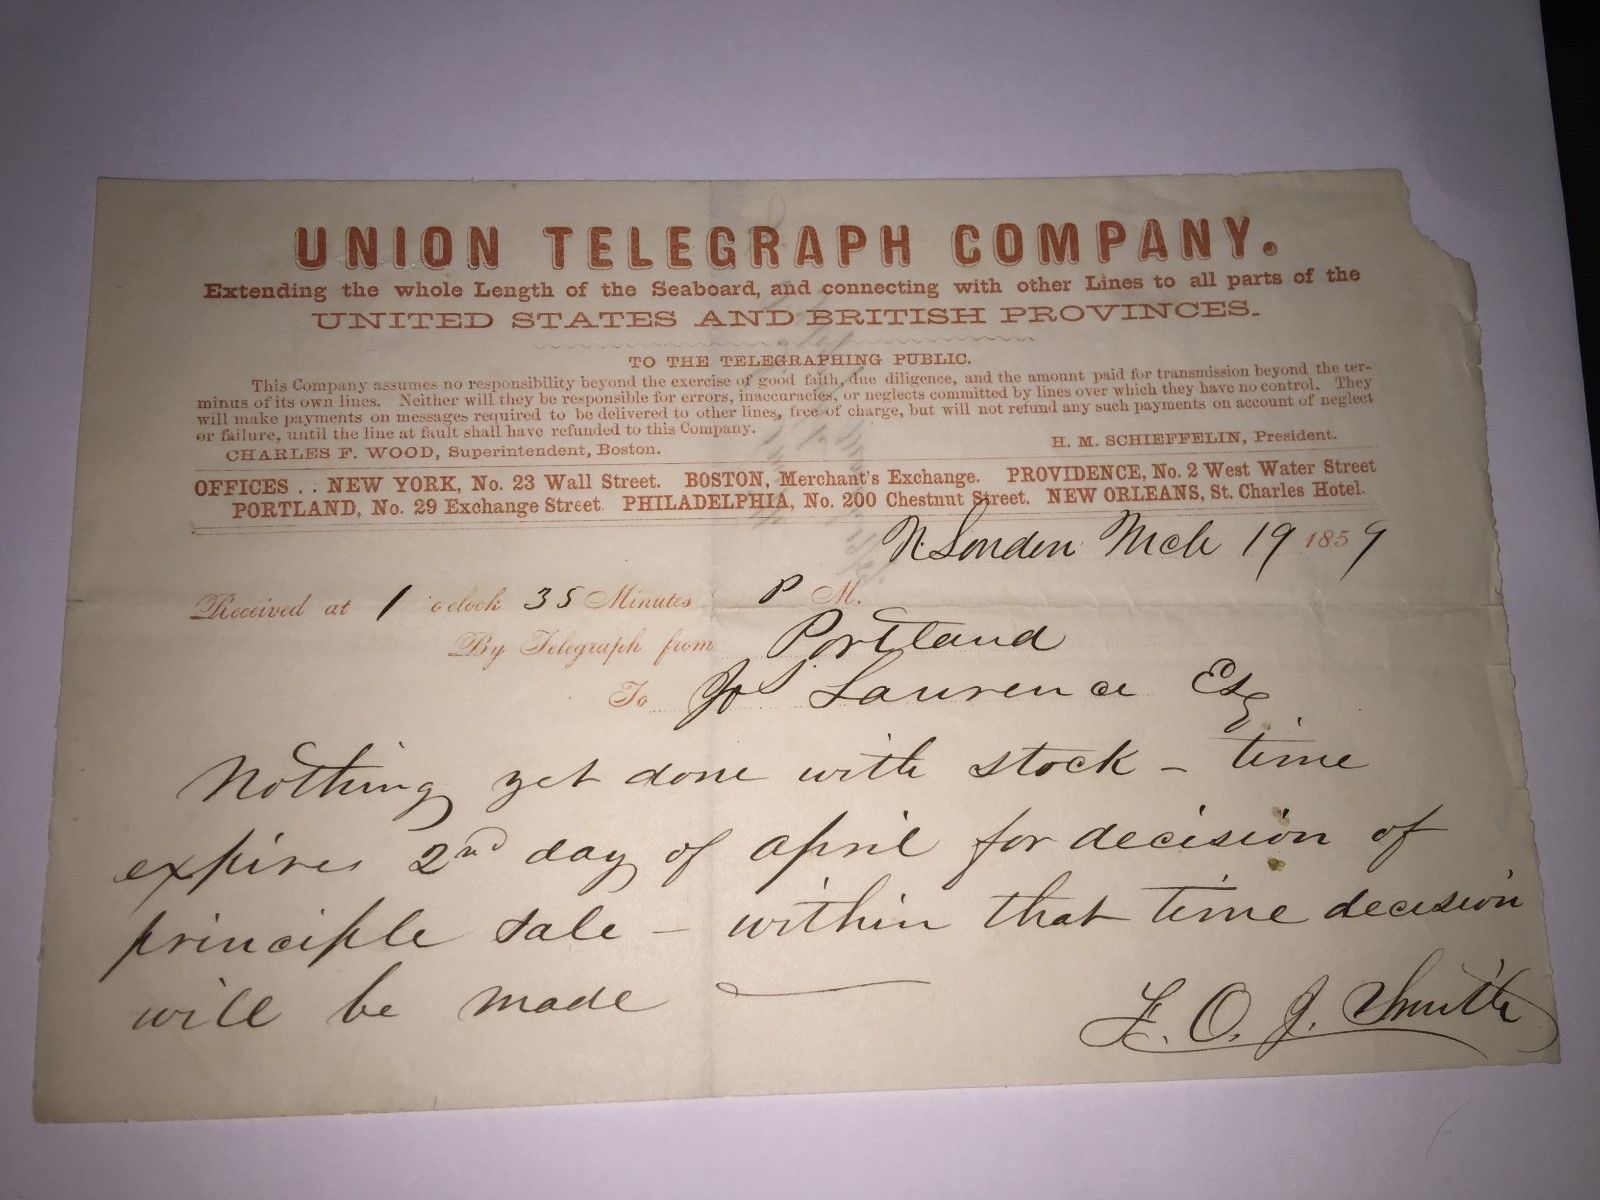 UNION TELEGRAPH COMPANY.
Extending the whole Length of the Seaboard, and connecting with other Lines to all parts of the
UNITED STATES AND BRITISH PROVINCES.
TO THE TELEGRAPHING PUBLIC.
This Company assumes no responsibility beyond the exercise of good faith, due diligence, and the amount paid for transmission beyond the ter-
minus of its own lines. Neither will they be responsible for errors, inaccuracies, or neglects committed by lines over which they have no control. They
will make payments on messages required to be delivered to other lines, free of charge, but will not refund any such payments on account of neglect
or failure, until the line at fault shall have refunded to this Company.
CHARLES F. WOOD, Superintendent, Boston. H. M. SCHIEFFELIN, President.
OFFICES . . NEW YORK, No. 23 Wall Street. BOSTON, Merchant's Exchange. PROVIDENCE, No. 2 West Water Street
PORTLAND, No. 29 Exchange Street. PHILADELPHIA, No. 200 Chestnut Street. NEW ORLEANS, St. Charles Hotel.
N. London Mch 19 1859
Received at 1 o'clock 35 Minutes P M.
By Telegraph from Portland
To Jos Laurence Esq
Nothing yet done with stock - time
expires 2nd day of april for decision of
principle sale - within that time decision
will be made
F. O. J. Smith